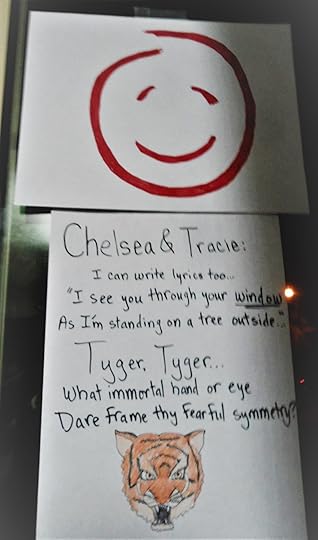 Chelsea & Tracie:
I can write lyrics too...
"I see you through your window
As I'm standing on a tree outside..."
Tyger, Tyger...
What immortal hand or eye
Dare frame thy fearful symmetry?